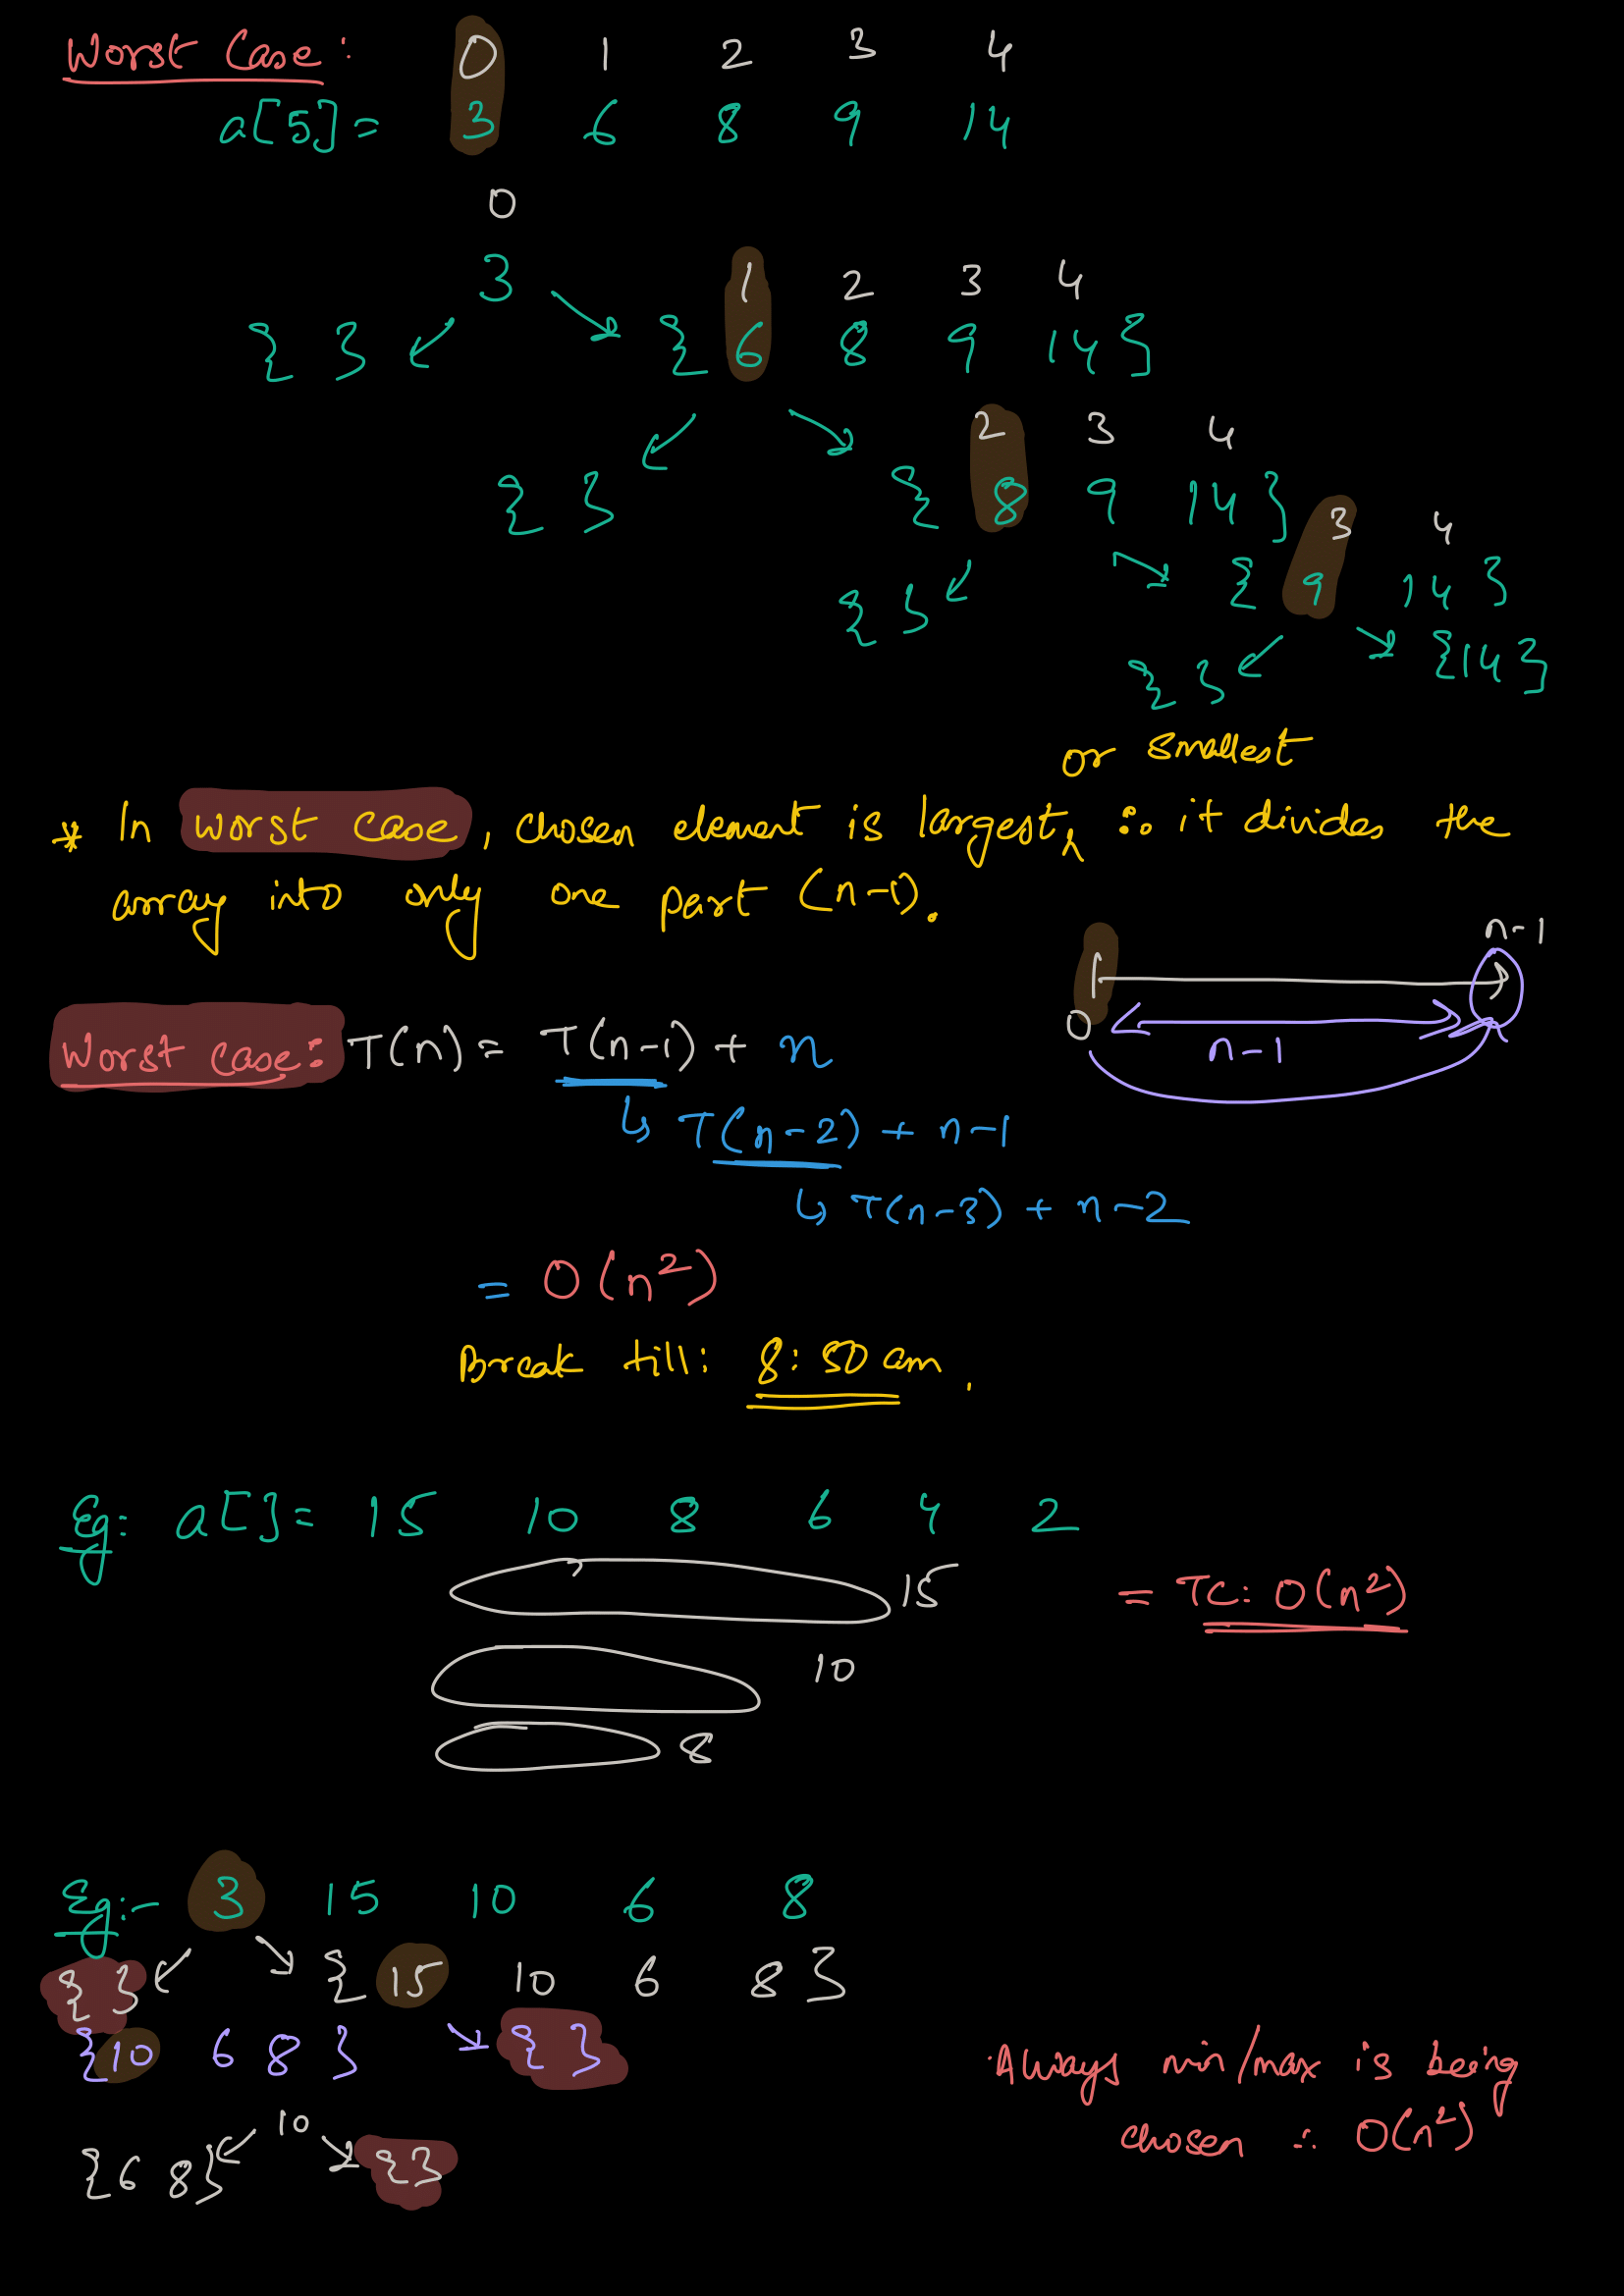 Worst Case : 0 1 2 3 4
a[5] = 3 6 8 9 14
0
3 1 2 3 4
{ } { 6 8 9 14 }
2 3 4
{ } { 8 9 14 }
3 4
{ } { 9 14 }
{ } {14}
or smallest
* In worst case, chosen element is largest, ∴ it divides the
array into only one part (n-1).
n-1
0
n-1
Worst case: T(n) = T(n-1) + n
↳ T(n-2) + n-1
↳ T(n-3) + n-2
= O(n²)
Break till: 8:50 am.
Eg: a[] = 15 10 8 6 4 2
15
= TC: O(n²)
10
8
Eg:- 3 15 10 6 8
{ } { 15 10 6 8 }
{10 6 8 } { }
10
{6 8} {}
Always min/max is being
chosen ∴ O(n²)